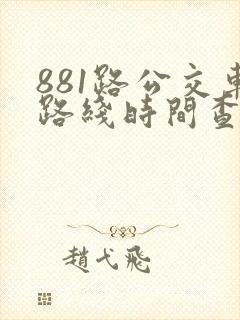 881路公交車
路綫時間查
趙弋飛